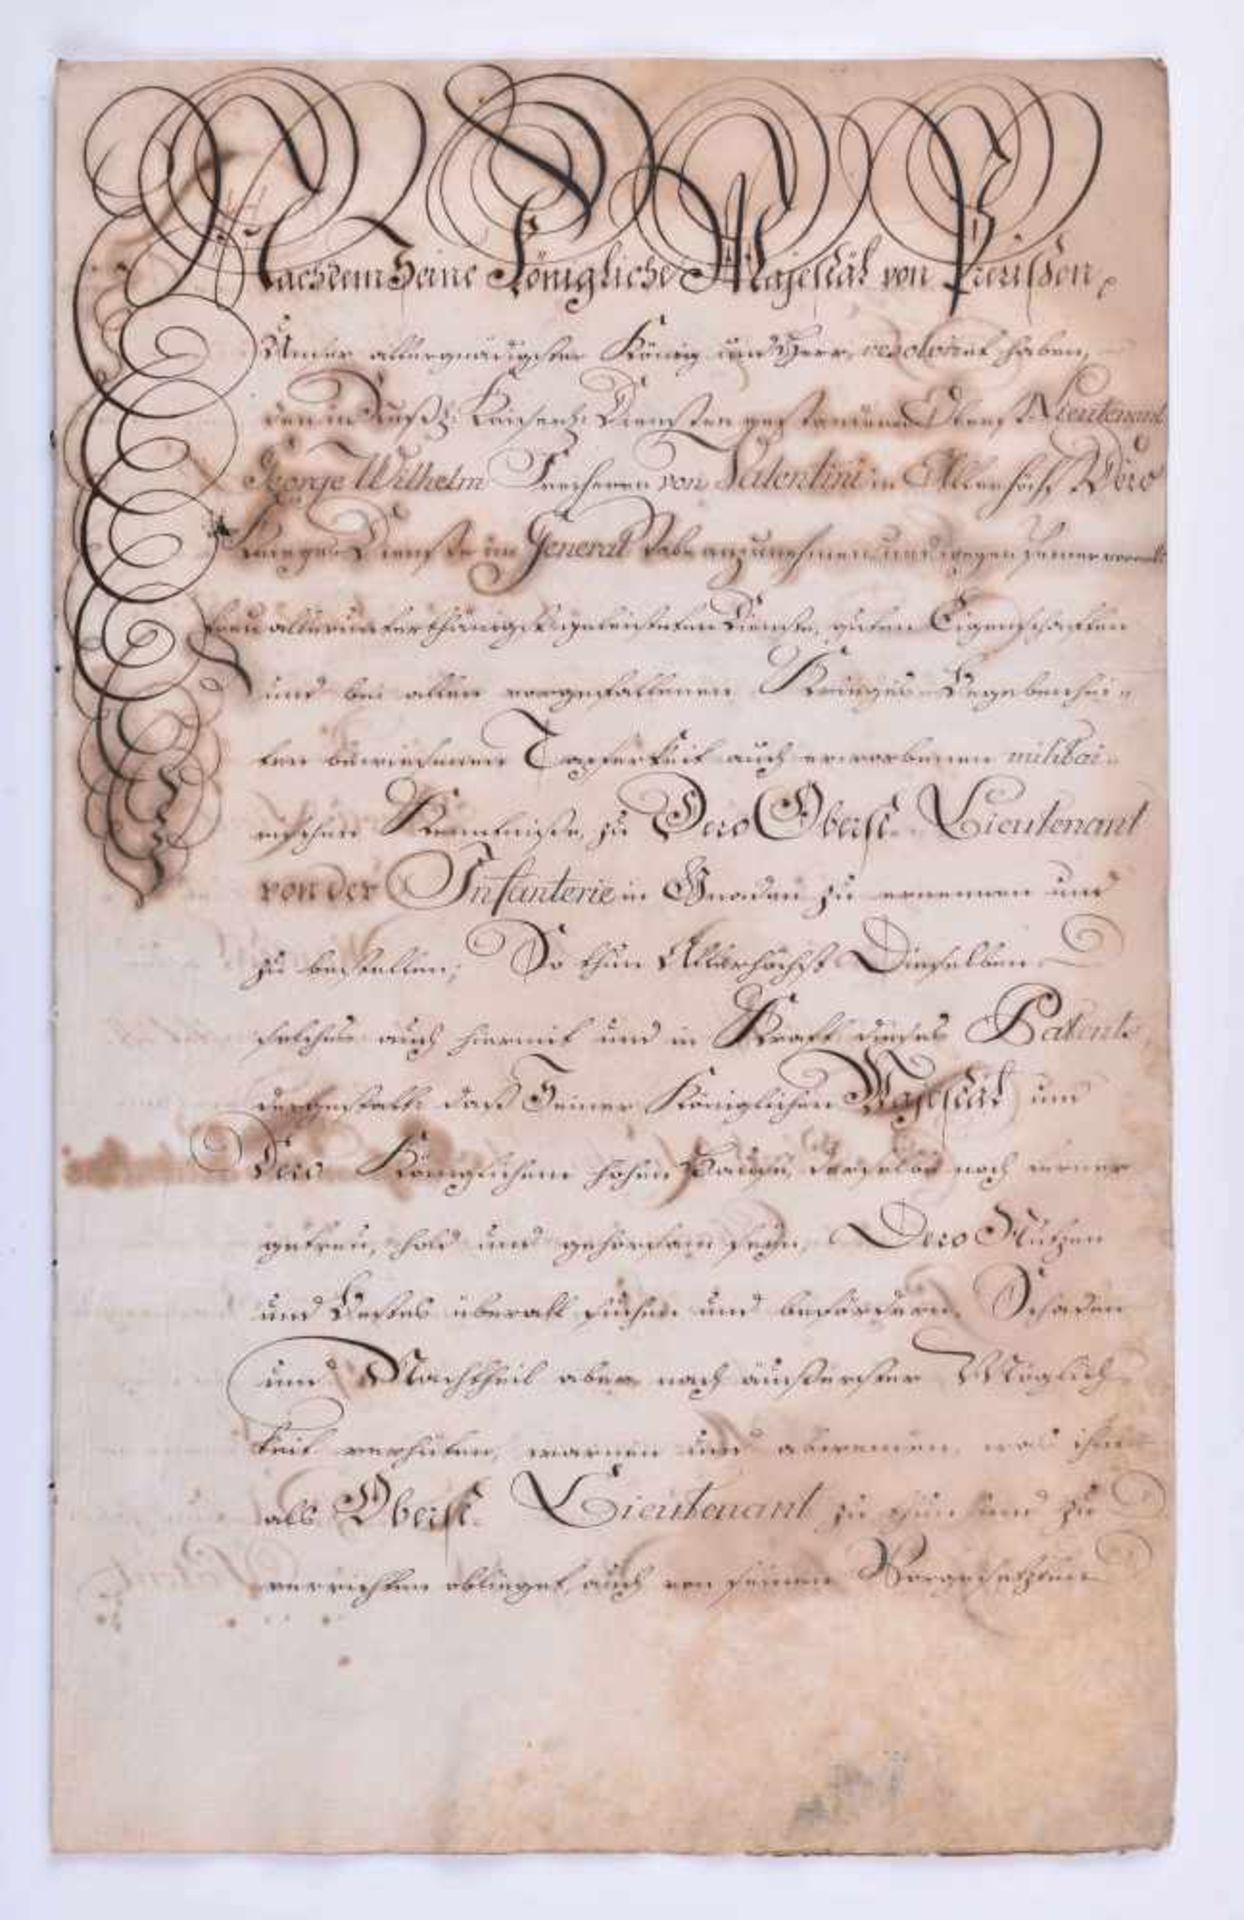 Nachdem Seine Königliche Majestät von Preussen,
Unser allergnädigster König und Herr, resolviret haben,
den in Russ: Kaiserl: Diensten gestandenen Oberst Lieutenant
George Wilhelm Freiherrn von Valentini in Allerhöchst Dero
Krieges Dienste im General Stabe anzunehmen und wegen seiner
treu allerunterthänigst geleisteten Dienste, guten Eigenschaften
und bei allen vorgefallenen Krieges-Begebenhei-
ten bewiesenen Tapferkeit auch erworbenen militai-
rischen Kenntnisse, zu Dero Oberst-Lieutenant
von der Infanterie in Gnaden zu ernennen und
zu bestellen; So thun Allerhöchst Dieselben
solches auch hiermit und in Kraft dieses Patents
dergestalt, daß Seiner Königlichen Majestät und
Dero Königlichem hohen Hause, derselbe noch ferner
getreu, hold und gehorsam seyn, Dero Nutzen
und Bestes überall suchen und befördern, Schaden
und Nachtheil aber nach äußerster Möglich-
keit verhüten, warnen und abwenden, was ihm
als Oberst-Lieutenant zu thun und zu
verrichten oblieget, auch von seinen Vorgesetzten